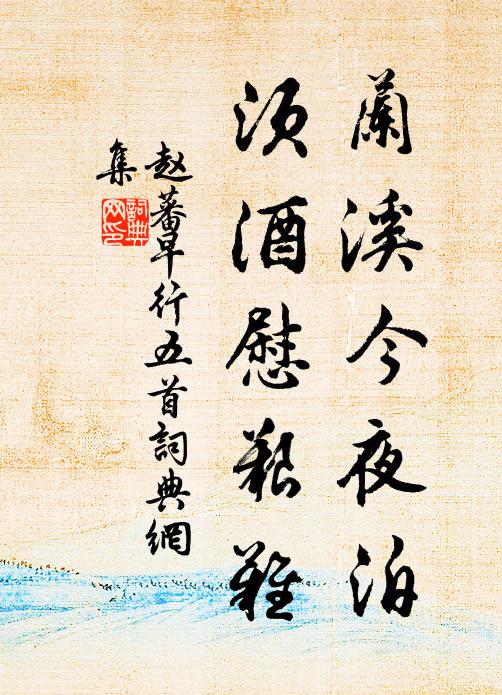 蘭溪今夜泊
須酒慰艱難
赵蕃早行五首詞典網
集
詞典
网印